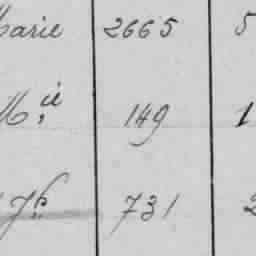 Marie 2665 5
M.ie 149 1
Jh 731 2